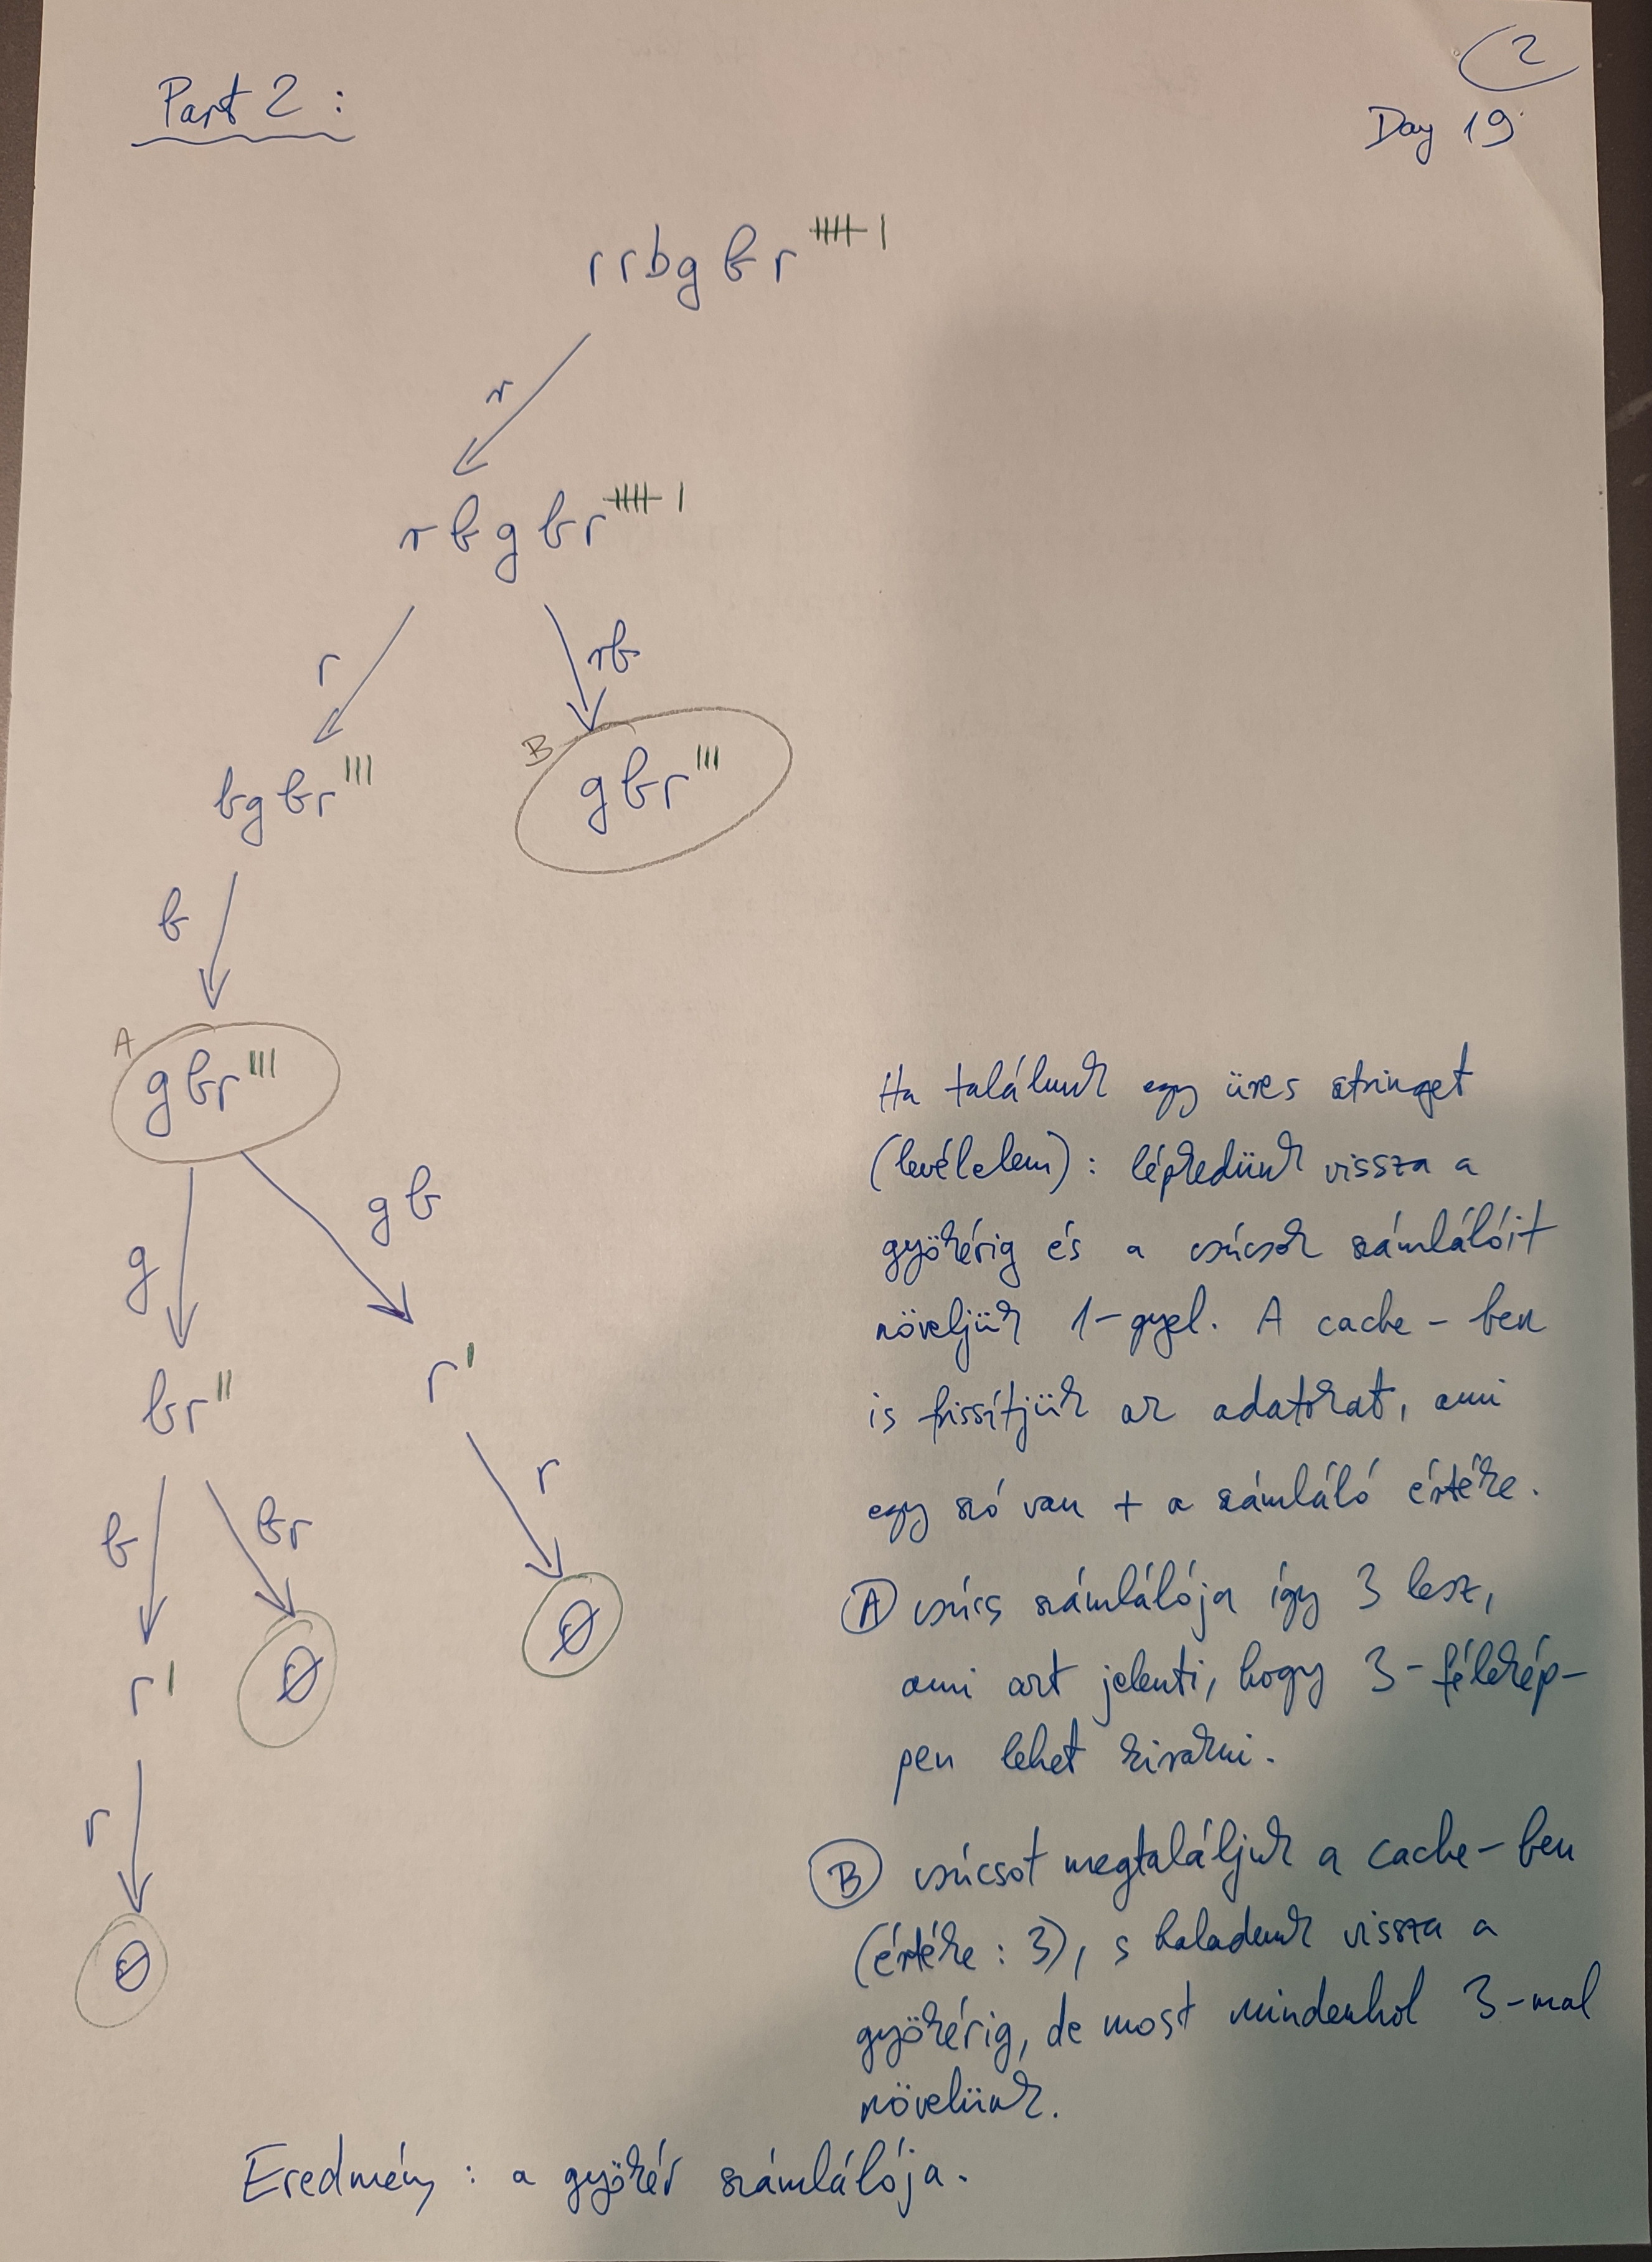 2
Part 2 :
Day 19
rrbgbr |||| |
r
rbgbr |||| |
r rb
bgbr ||| B gbr |||
b
A gbr |||
g gb
br || r |
b br r
r | ∅ ∅
r
∅
Ha találunk egy üres stringet
(levélelem) : lépkedünk vissza a
gyökérig és a csúcsok számlálóit
növeljük 1-gyel. A cache-ben
is frissítjük az adatokat, ami
egy szó van + a számláló értéke.
A csúcs számlálója így 3 lesz,
ami azt jelenti, hogy 3-félekép-
pen lehet kirakni.
B csúcsot megtaláljuk a cache-ben
(értéke : 3), s haladunk vissza a
gyökérig, de most mindenhol 3-mal
növelünk.
Eredmény : a gyökér számlálója.